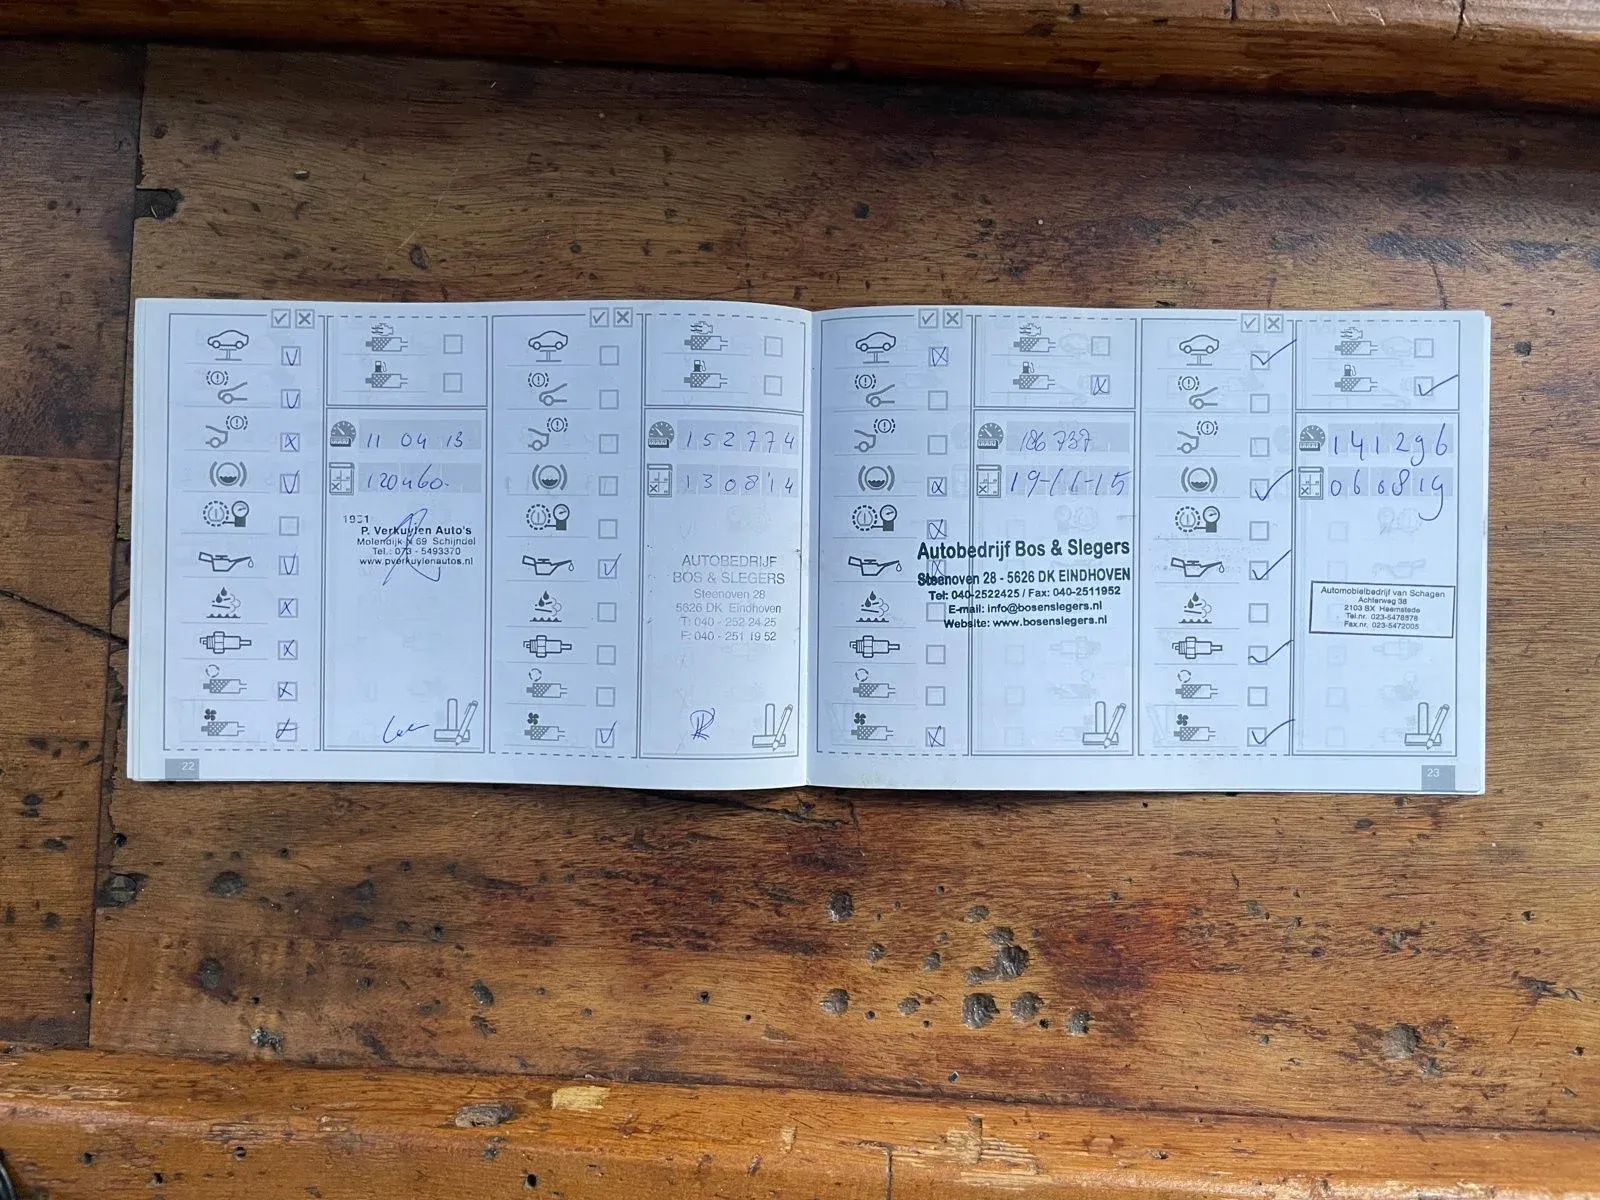 11 04 13
120460-
1931
P. Verkuylen Auto's
Molendijk N 69 Schijndel
Tel.: 073 - 5493370
www.pverkuylenautos.nl
22
152774
130814
AUTOBEDRIJF
BOS & SLEGERS
Steenoven 28
5626 DK Eindhoven
T: 040 - 252 24 25
F: 040 - 251 19 52
186737
Autobedrijf Bos & Slegers
Steenoven 28 - 5626 DK EINDHOVEN
Tel: 040-2522425 / Fax: 040-2511952
E-mail: info@bosenslegers.nl
Website: www.bosenslegers.nl
141296
060819
Automobielbedrijf van Schagen
Achterweg 38
2103 SX Heemstede
Tel.nr. 023-5478578
Fax.nr. 023-5472005
23